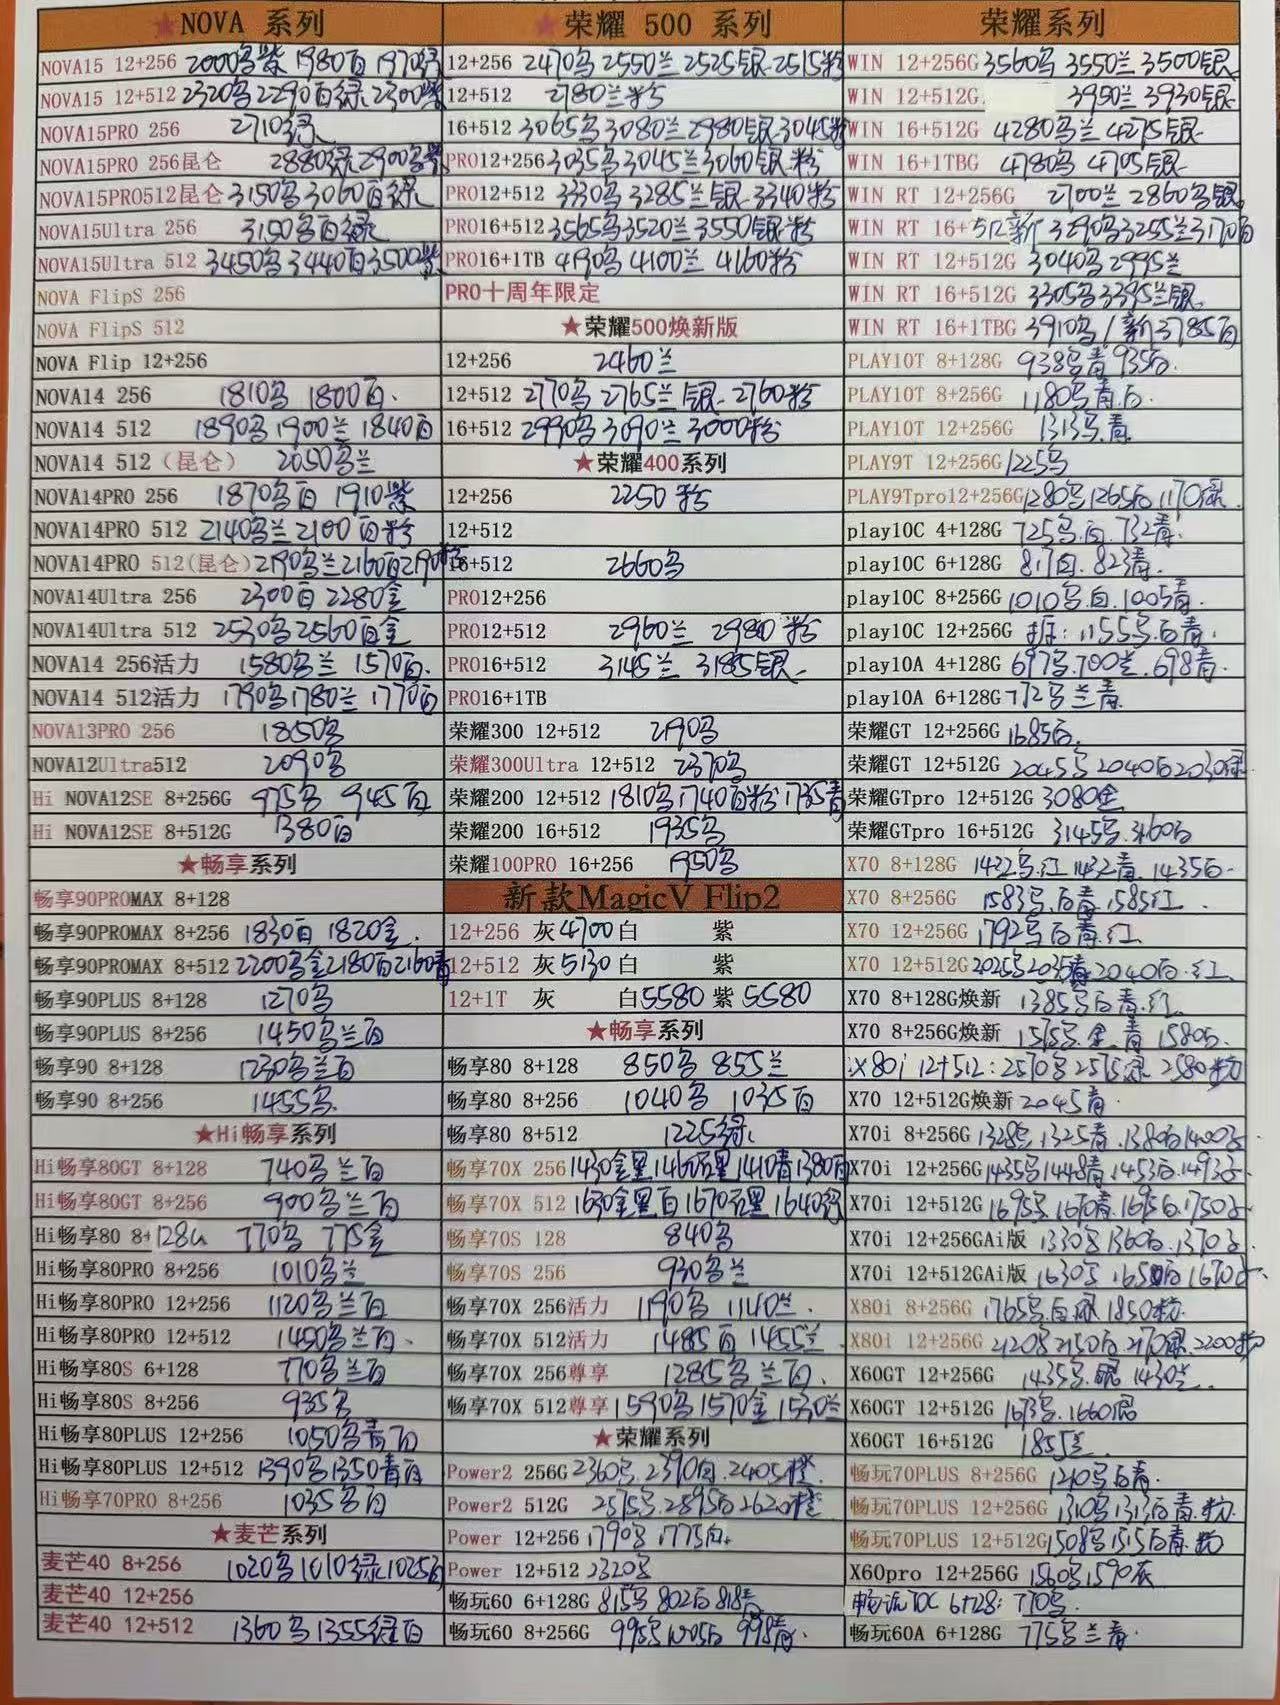 ★NOVA 系列
NOVA15 12+256 2000乌紫 1980白 1970绿
NOVA15 12+512 2320乌 2290白绿 2300紫
NOVA15PRO 256 2710绿
NOVA15PRO 256昆仑 2880绿 2900乌紫
NOVA15PRO512昆仑 3150乌 3060白绿
NOVA15Ultra 256 3150乌白绿
NOVA15Ultra 512 3450乌 3440白 3500紫
NOVA FlipS 256
NOVA FlipS 512
NOVA Flip 12+256
NOVA14 256 1810乌 1800白
NOVA14 512 1890乌 1900兰 1840白
NOVA14 512（昆仑） 2050乌兰
NOVA14PRO 256 1870乌白 1910紫
NOVA14PRO 512 2140乌兰 2100白粉
NOVA14PRO 512(昆仑) 2190乌兰 2160白 2190粉
NOVA14Ultra 256 2300白 2280金
NOVA14Ultra 512 2530乌 2560白金
NOVA14 256活力 1580乌兰 1570白
NOVA14 512活力 1790乌 1780兰 1770白
NOVA13PRO 256 1850乌
NOVA12Ultra512 2090乌
Hi NOVA12SE 8+256G 975乌 945白
Hi NOVA12SE 8+512G 1380白
★畅享系列
畅享90PROMAX 8+128
畅享90PROMAX 8+256 1830白 1820金
畅享90PROMAX 8+512 2200乌金 2180白 2160青
畅享90PLUS 8+128 1270乌
畅享90PLUS 8+256 1450乌兰白
畅享90 8+128 1230乌兰白
畅享90 8+256 1455乌
★Hi畅享系列
Hi畅享80GT 8+128 740乌兰白
Hi畅享80GT 8+256 900乌兰白
Hi畅享80 8+128G 770乌 775金
Hi畅享80PRO 8+256 1010乌兰
Hi畅享80PRO 12+256 1120乌兰白
Hi畅享80PRO 12+512 1450乌兰白
Hi畅享80S 6+128 770乌兰白
Hi畅享80S 8+256 935乌
Hi畅享80PLUS 12+256 1050乌青白
Hi畅享80PLUS 12+512 1390乌 1350青白
Hi畅享70PRO 8+256 1035乌白
★麦芒系列
麦芒40 8+256 1020乌 1010绿 1025白
麦芒40 12+256
麦芒40 12+512 1360乌 1355绿白
★荣耀 500 系列
12+256 2470乌 2550兰 2525银 2515粉
12+512 2780兰粉
16+512 3065乌 3080兰 2980银 3045粉
PRO12+256 3035乌 3045兰 3060银粉
PRO12+512 3330乌 3285兰银 3340粉
PRO16+512 3565乌 3520兰 3550银粉
PRO16+1TB 4190乌 4100兰 4160粉
PRO十周年限定
★荣耀500焕新版
12+256 2460兰
12+512 2770乌 2765兰银 2760粉
16+512 2990乌 3090兰 3000粉
★荣耀400系列
12+256 2250粉
12+512
16+512 2660乌
PRO12+256
PRO12+512 2960兰 2980粉
PRO16+512 3145兰 3185银
PRO16+1TB
荣耀300 12+512 2190乌
荣耀300Ultra 12+512 2370乌
荣耀200 12+512 1810乌 1740白粉 1735青
荣耀200 16+512 1935乌
荣耀100PRO 16+256 1950乌
新款MagicV Flip2
12+256 灰4700白 紫
12+512 灰5130白 紫
12+1T 灰 白5580 紫5580
★畅享系列
畅享80 8+128 850乌 855兰
畅享80 8+256 1040乌 1035白
畅享80 8+512 1225绿
畅享70X 256 1430金黑 1460石墨 1410青 1380白
畅享70X 512 1630金黑白 1670石墨 1640绿
畅享70S 128 840乌
畅享70S 256 930乌兰
畅享70X 256活力 1190乌 1140兰
畅享70X 512活力 1485白 1455兰
畅享70X 256尊享 1285乌兰白
畅享70X 512尊享 1590乌 1570金 1530兰
★荣耀系列
Power2 256G 2360乌 2390白 2405橙
Power2 512G 2575乌 2895白 2620橙
Power 12+256 1790乌 1775白
Power 12+512 2320乌
畅玩60 6+128G 815乌 802白 818青
畅玩60 8+256G 995乌 1005白 998青
荣耀系列
WIN 12+256G 3560乌 3550兰 3500银
WIN 12+512G 3950兰 3930银
WIN 16+512G 4280乌兰 4275银
WIN 16+1TBG 4780乌 4705银
WIN RT 12+256G 2700兰 2860乌银
WIN RT 16+512新 3290乌 3255兰 3170白
WIN RT 12+512G 3040乌 2995兰
WIN RT 16+512G 3305乌 3395兰银
WIN RT 16+1TBG 3910乌/新3785白
PLAY10T 8+128G 938乌青 935白
PLAY10T 8+256G 1180乌青白
PLAY10T 12+256G 1313乌青
PLAY9T 12+256G 1225乌
PLAY9Tpro12+256G 1280乌 1265白 1170绿
play10C 4+128G 725乌白 732青
play10C 6+128G 817白 823青
play10C 8+256G 1010乌白 1005青
play10C 12+256G 1155乌白青
play10A 4+128G 697乌 700兰 698青
play10A 6+128G 772乌兰青
荣耀GT 12+256G 1685白
荣耀GT 12+512G 2045乌 2040白 2030绿
荣耀GTpro 12+512G 3080金
荣耀GTpro 16+512G 3145乌 3160白
X70 8+128G 1432乌红 1432青 1435白
X70 8+256G 1583乌白青 1585红
X70 12+256G 1792乌白青红
X70 12+512G 2025乌 2035青 2040白红
X70 8+128G焕新 1385乌白青红
X70 8+256G焕新 1575乌金青 1580白
X80i 12+512: 2570乌 2575绿 2580粉
X70 12+512G焕新 2045青
X70i 8+256G 1328乌 1325青 1380白 1400
X70i 12+256G 1435乌 1448青 1453白 1493
X70i 12+512G 1695乌 1670青 1695白 1750
X70i 12+256GAi版 1330乌 1360白 1370
X70i 12+512GAi版 1630乌 1650白 1670
X80i 8+256G 1765乌白绿 1850粉
X80i 12+256G 2120乌 2150白 2170绿 2200粉
X60GT 12+256G 1435乌银 1430兰
X60GT 12+512G 1673乌 1660银
X60GT 16+512G 1855兰
畅玩70PLUS 8+256G 1210乌白青
畅玩70PLUS 12+256G 1310乌 1313白青粉
畅玩70PLUS 12+512G 1508乌 1515白青粉
X60pro 12+256G 1560乌 1590灰
畅玩70C 6+128: 770乌
畅玩60A 6+128G 775乌兰青